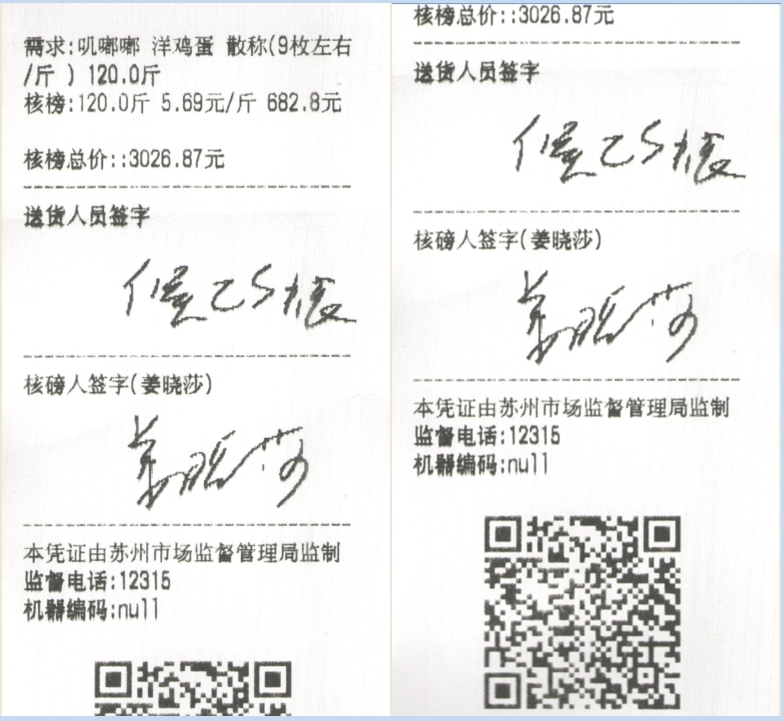 需求:叽嘟嘟 洋鸡蛋 散称(9枚左右
/斤 ) 120.0斤
核榜:120.0斤 5.69元/斤 682.8元
核榜总价::3026.87元
送货人员签字
核磅人签字(姜晓莎)
姜晓莎
本凭证由苏州市场监督管理局监制
监督电话:12315
机器编码:null
核榜总价::3026.87元
送货人员签字
核磅人签字(姜晓莎)
姜晓莎
本凭证由苏州市场监督管理局监制
监督电话:12315
机器编码:null